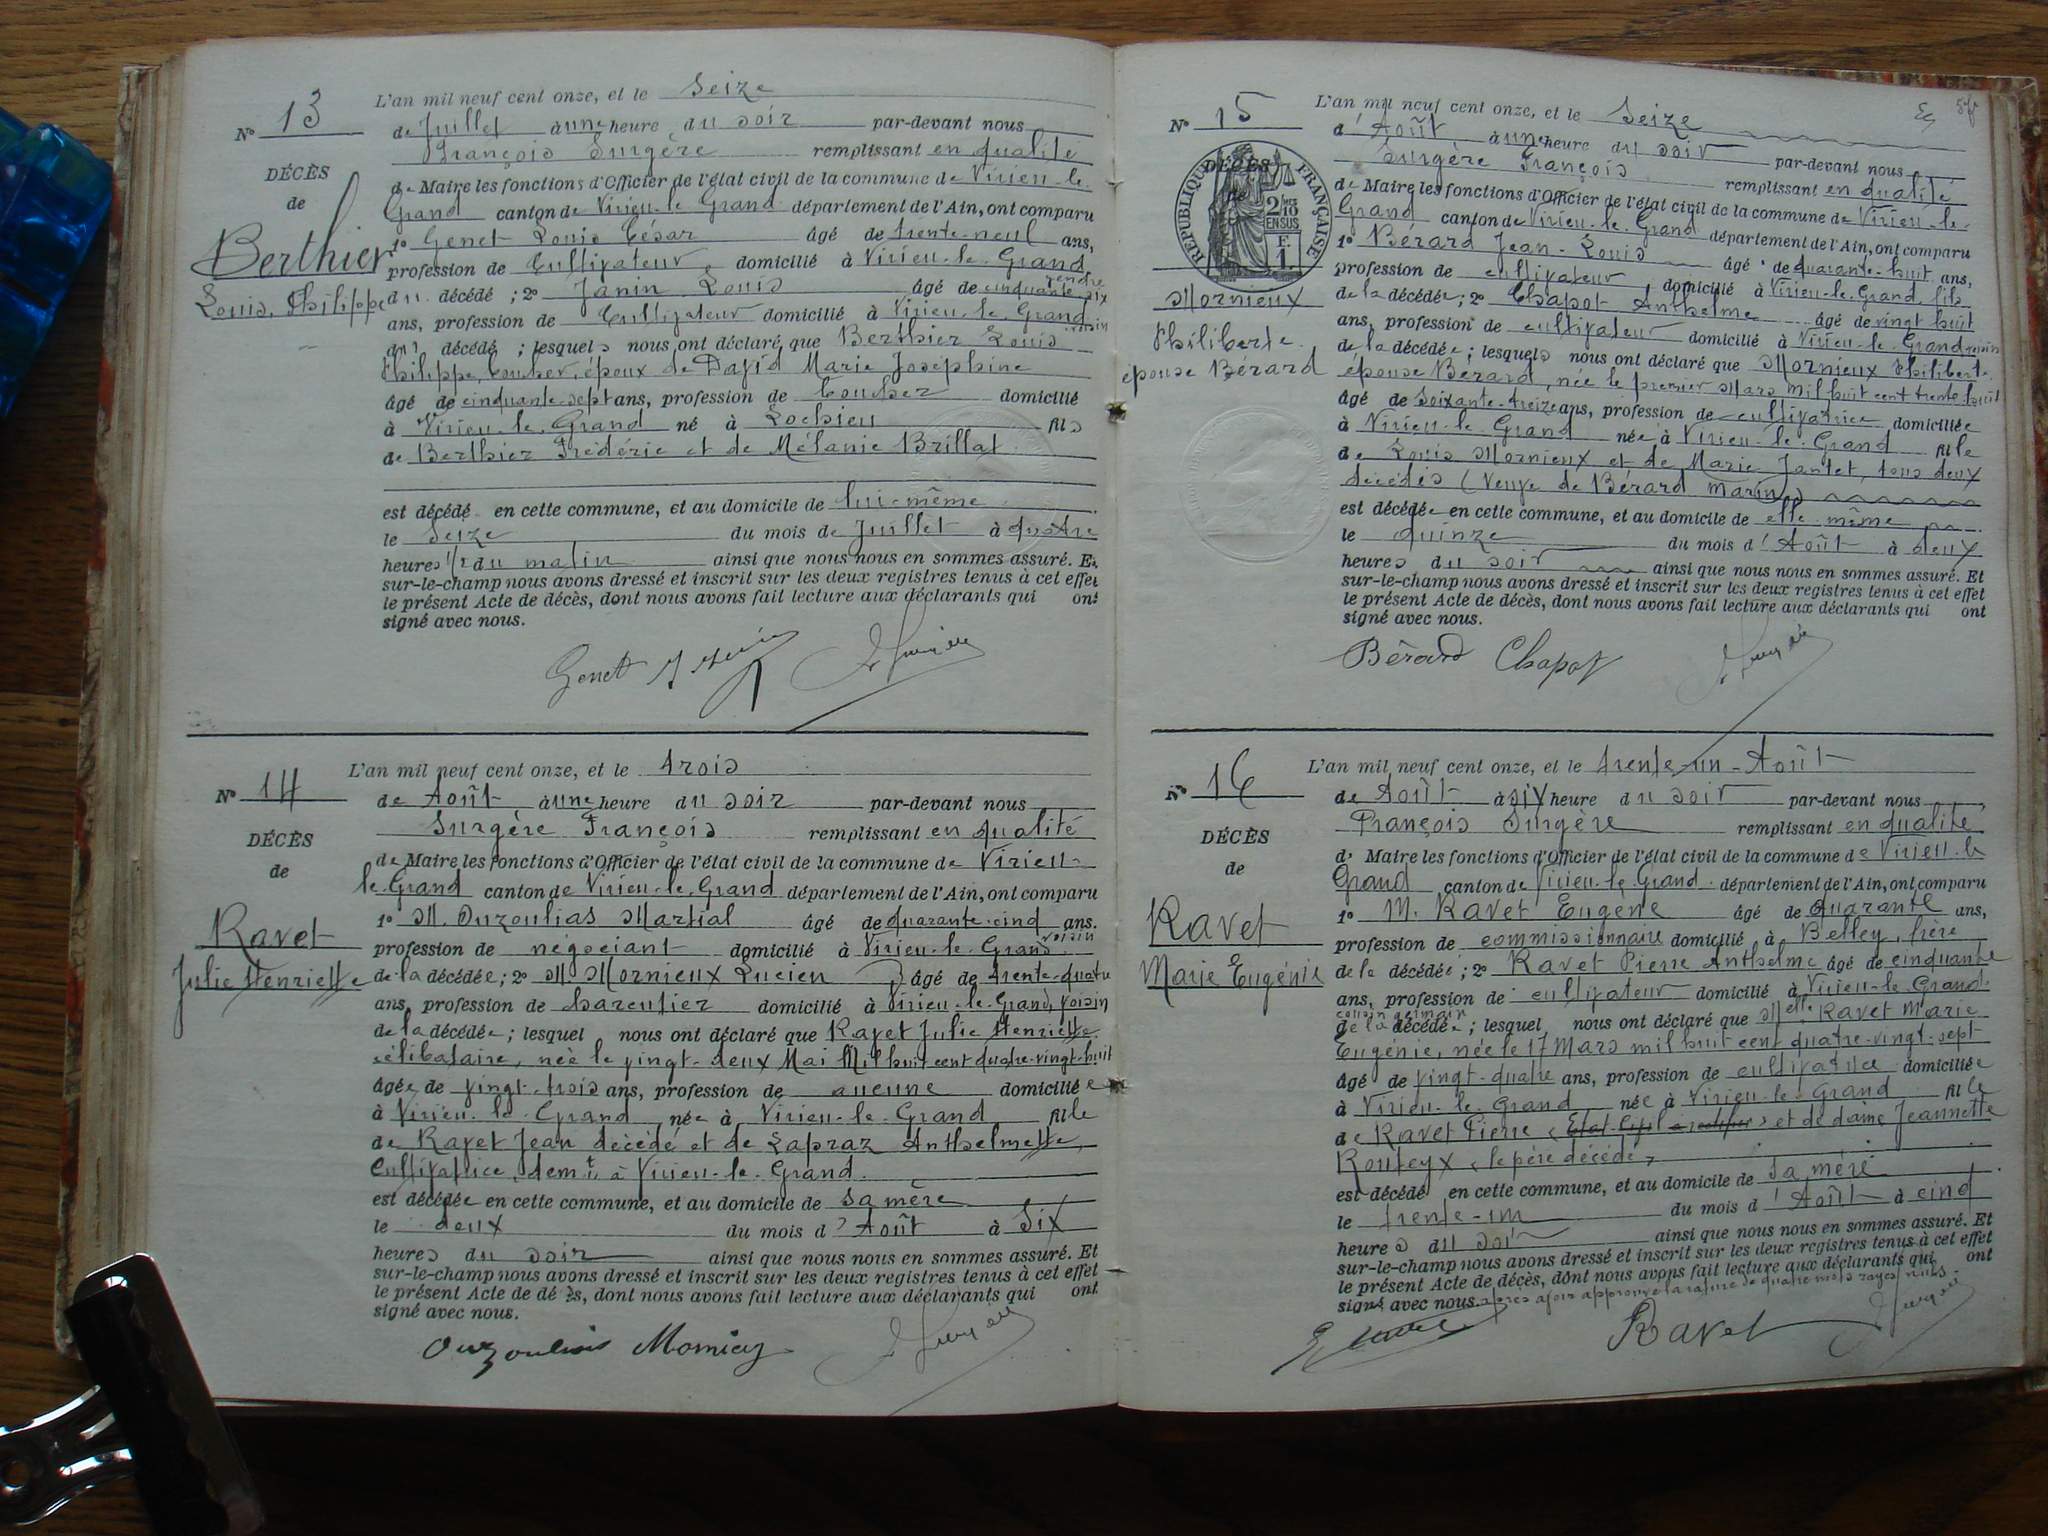 N° 13
DÉCÈS
de
Berthier
Louis Philippe
L'an mil neuf cent onze, et le Seize
de Juillet à une heure du soir par-devant nous
François Surgère remplissant en qualité
de Maire les fonctions d'Officier de l'état civil de la commune de Virieu-le-
Grand canton de Virieu-le-Grand département de l'Ain, ont comparu
1° Genet Louis César âgé de trente-neuf ans,
profession de Cultivateur, domicilié à Virieu-le-Grand
gendre
du décédé ; 2° Janin Louis âgé de cinquante-six
ans, profession de Cultivateur domicilié à Virieu-le-Grand
voisin
du décédé ; lesquels nous ont déclaré que Berthier Louis
Philippe, époux de David Marie Joséphine
âgé de cinquante-sept ans, profession de domicilié
à Virieu-le-Grand né à Lochieu fils
de Berthier Frédéric et de Mélanie Brillat
est décédé en cette commune, et au domicile de lui-même
le Seize du mois de Juillet à quatre
heures 1/2 du matin ainsi que nous nous en sommes assuré. Et
sur-le-champ nous avons dressé et inscrit sur les deux registres tenus à cet effet
le présent Acte de décès, dont nous avons fait lecture aux déclarants qui ont
signé avec nous.
Genet
N° 14
DÉCÈS
de
Ravet
Julie Henriette
L'an mil neuf cent onze, et le trois
de Août à une heure du soir par-devant nous
Surgère François remplissant en qualité
de Maire les fonctions d'Officier de l'état civil de la commune de Virieu-
le-Grand canton de Virieu-le-Grand département de l'Ain, ont comparu
1° M. Ouzoulias Martial âgé de quarante-cinq ans.
profession de négociant domicilié à Virieu-le-Grand voisin
de la décédée ; 2° M. Mornieux Lucien âgé de trente-quatre
ans, profession de charcutier domicilié à Virieu-le-Grand, voisin
de la décédée ; lesquel nous ont déclaré que Ravet Julie Henriette
célibataire, née le vingt-deux Mai Mil huit cent quatre-vingt-huit
âgée de vingt-trois ans, profession de aucune domiciliée
à Virieu-le-Grand née à Virieu-le-Grand fille
de Ravet Jean décédé et de Lapraz Anthelmette,
Cultivatrice, demt à Virieu-le-Grand.
est décédée en cette commune, et au domicile de sa mère
le deux du mois d'Août à Six
heures du soir ainsi que nous nous en sommes assuré. Et
sur-le-champ nous avons dressé et inscrit sur les deux registres tenus à cet effet
le présent Acte de décès, dont nous avons fait lecture aux déclarants qui ont
signé avec nous.
Ouzoulias
N° 15
RÉPUBLIQUE FRANÇAISE
2/10 EN SUS
DÉCÈS
de
Mornieux
Philiberte
épouse Bérard
L'an mil neuf cent onze, et le Seize
d'Août à une heure du soir par-devant nous
Surgère François remplissant en qualité
de Maire les fonctions d'Officier de l'état civil de la commune de Virieu-le-
Grand canton de Virieu-le-Grand département de l'Ain, ont comparu
1° Bérard Jean-Louis âgé de quarante-huit ans,
profession de cultivateur, domicilié à Virieu-le-Grand fils
de la décédée ; 2° Chapot Anthelme âgé de vingt huit
ans, profession de cultivateur domicilié à Virieu-le-Grand voisin
de la décédée ; lesquels nous ont déclaré que Mornieux Philiberte
épouse Bérard, née le premier Mars mil huit cent trente-huit
âgé de Soixante-treize ans, profession de cultivatrice domiciliée
à Virieu-le-Grand née à Virieu-le-Grand fille
de Louis Mornieux et de Marie Jantet, tous deux
décédés (Veuve de Bérard Marin)
est décédée en cette commune, et au domicile de elle-même
le quinze du mois d'Août à deux
heures du soir ainsi que nous nous en sommes assuré. Et
sur-le-champ nous avons dressé et inscrit sur les deux registres tenus à cet effet
le présent Acte de décès, dont nous avons fait lecture aux déclarants qui ont
signé avec nous.
Bérard Chapot
N° 16
DÉCÈS
de
Ravet
Marie Eugénie
L'an mil neuf cent onze, et le trente-un-Août
de Août à six heure du soir par-devant nous
François Surgère remplissant en qualité
de Maire les fonctions d'Officier de l'état civil de la commune de Virieu-le
Grand canton de Virieu-le-Grand département de l'Ain, ont comparu
1° M. Ravet Eugène âgé de Quarante ans,
profession de commissionnaire domicilié à Belley, frère
de la décédée ; 2° Ravet Pierre Anthelme âgé de cinquante
ans, profession de cultivateur domicilié à Virieu-le-Grand.
cousin germain
de la décédée ; lesquel nous ont déclaré que Melle Ravet Marie
Eugénie, née le 17 Mars mil huit cent quatre-vingt-sept
âgé de vingt-quatre ans, profession de cultivatrice domiciliée
à Virieu-le-Grand née à Virieu-le-Grand fille
de Ravet Pierre et de dame Jeannette
Routeyx (le père décédé)
est décédé en cette commune, et au domicile de sa mère
le trente-un du mois d'Août à cinq
heures du soir ainsi que nous nous en sommes assuré. Et
sur-le-champ nous avons dressé et inscrit sur les deux registres tenus à cet effet
le présent Acte de décès, dont nous avons fait lecture aux déclarants qui ont
signé avec nous. après avoir approuvé la rature de quatre mots rayés nuls.
Ravet